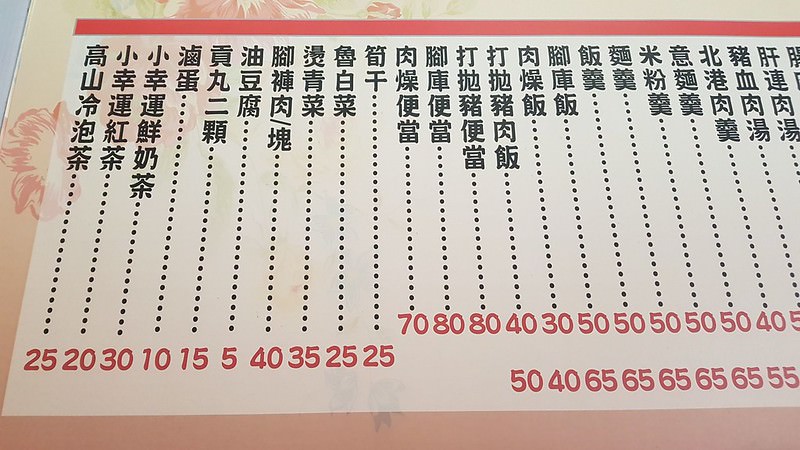 肝連肉湯
豬血肉湯
北港肉羹
意麵羹
米粉羹
麵羹
飯羹
腳庫飯
肉燥飯
打拋豬肉飯
打拋豬便當
腳庫便當
肉燥便當
筍干
魯白菜
燙青菜
腳褲肉/塊
油豆腐
貢丸二顆
滷蛋
小幸運鮮奶茶
小幸運紅茶
高山冷泡茶
70 80 80 40 30 50 50 50 50 50 40
25 20 30 10 15 5 40 35 25 25
50 40 65 65 65 65 65 55